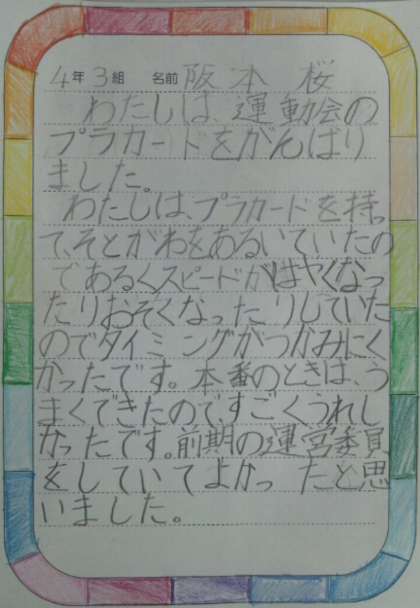 4年3組 名前 阪本 桜
わたしは、運動会の
プラカードをがんばり
ました。
わたしは、プラカードを持っ
て、そとがわをあるいていたの
であるくスピードがはやくなっ
たりおそくなったりしていた
のでタイミングがつかみにく
かったです。本番のときは、う
まくできたので、すごくうれし
かったです。前期の運営委員
をしていてよかったと思
いました。